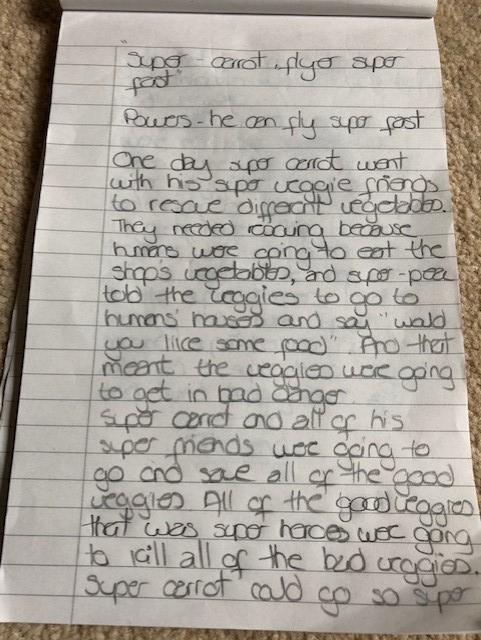 "Super-carrot, flyer super
fast"
Powers - he can fly super fast
One day super carrot went
with his super veggie friends
to rescue different vegetables.
They needed rescuing because
humans were going to eat the
shops vegetables, and super-pea
told the veggies to go to
humans' houses and say "would
you like some food". And that
meant the veggies were going
to get in bad danger
Super carrot and all of his
super friends were going to
go and save all of the good
veggies. All of the good veggies
that was super heroes were going
to kill all of the bad veggies.
Super carrot could go so super